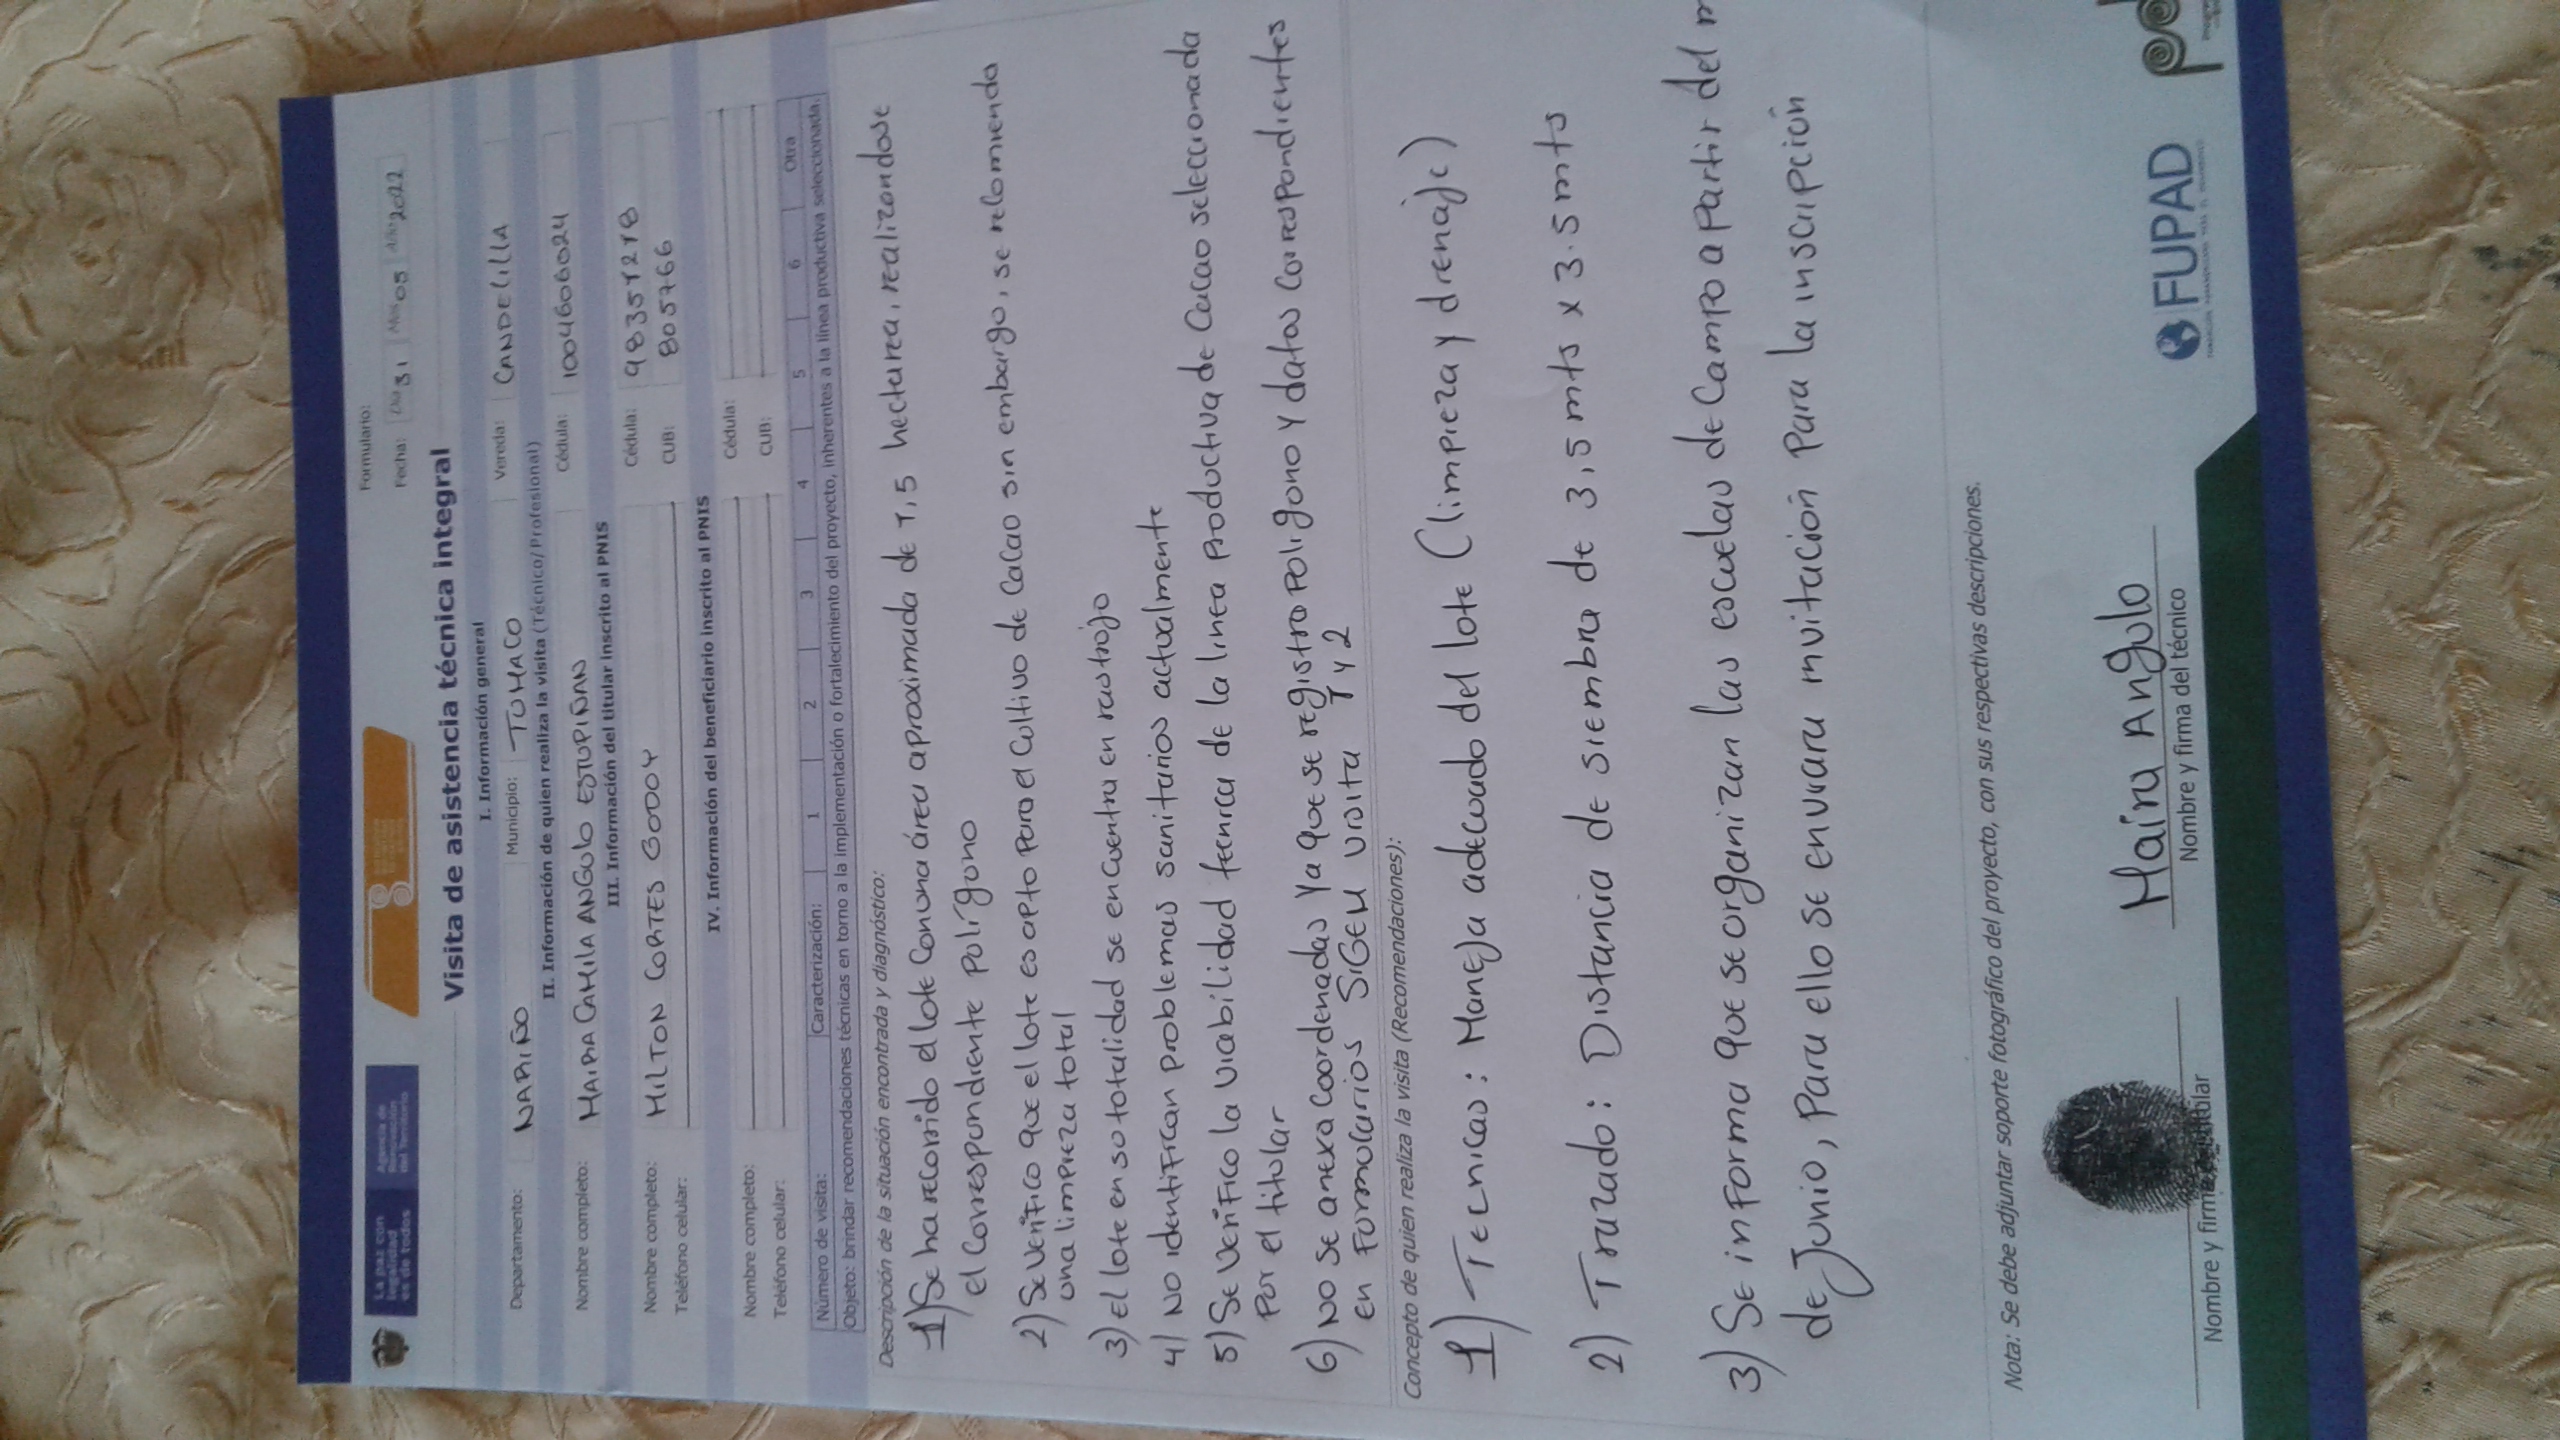 La paz con
legalidad
es de todos
Agencia de
Renovación
del Territorio
Formulario:
Fecha: Día 31 Mes 05 Año 2022
Visita de asistencia técnica integral
I. Información general
Departamento: NARIÑO Municipio: TUMACO Vereda: CANDELILLA
II. Información de quien realiza la visita (Técnico/Profesional)
Nombre completo: MAIRA CAMILA ANGULO ESTUPIÑAN Cédula: 1004606024
III. Información del titular inscrito al PNIS
Nombre completo: MILTON CORTES GODOY Cédula: 98351218
Teléfono celular: CUB: 805766
IV. Información del beneficiario inscrito al PNIS
Nombre completo: Cédula:
Teléfono celular: CUB:
Número de visita: Caracterización: 1 2 3 4 5 6 Otra
Objeto: brindar recomendaciones técnicas en torno a la implementación o fortalecimiento del proyecto, inherentes a la línea productiva seleccionada.
Descripción de la situación encontrada y diagnóstico:
1) Se ha recorrido el lote con una área aproximada de 1,5 hectarea, realizondose
el correspondiente polígono
2) Se verifico que el lote es apto para el cultivo de cacao sin embargo, se relomienda
una limpieza total
3) el lote en su totalidad se encuentra en rastrojo
4) No identifican problemas sanitarios actualmente
5) Se verifico la viabilidad tecnica de la linea productiva de Cacao seleccionada
por el titular
6) No se anexa Coordenadas ya que se registro poligono y datos correspondientes
en Formularios SIGEM visita 1 y 2
Concepto de quien realiza la visita (Recomendaciones):
1) Tecnicas: Maneja adecuado del lote (limpieza y drenaje)
2) Trazado: Distancia de siembra de 3,5 mts x 3.5 mts
3) Se informa que se organizan las escuelas de Campo a partir del
de Junio, para ello se enviara invitación para la inscripción
Nota: Se debe adjuntar soporte fotográfico del proyecto, con sus respectivas descripciones.
Maira Angulo
Nombre y firma titular Nombre y firma del técnico
FUPAD